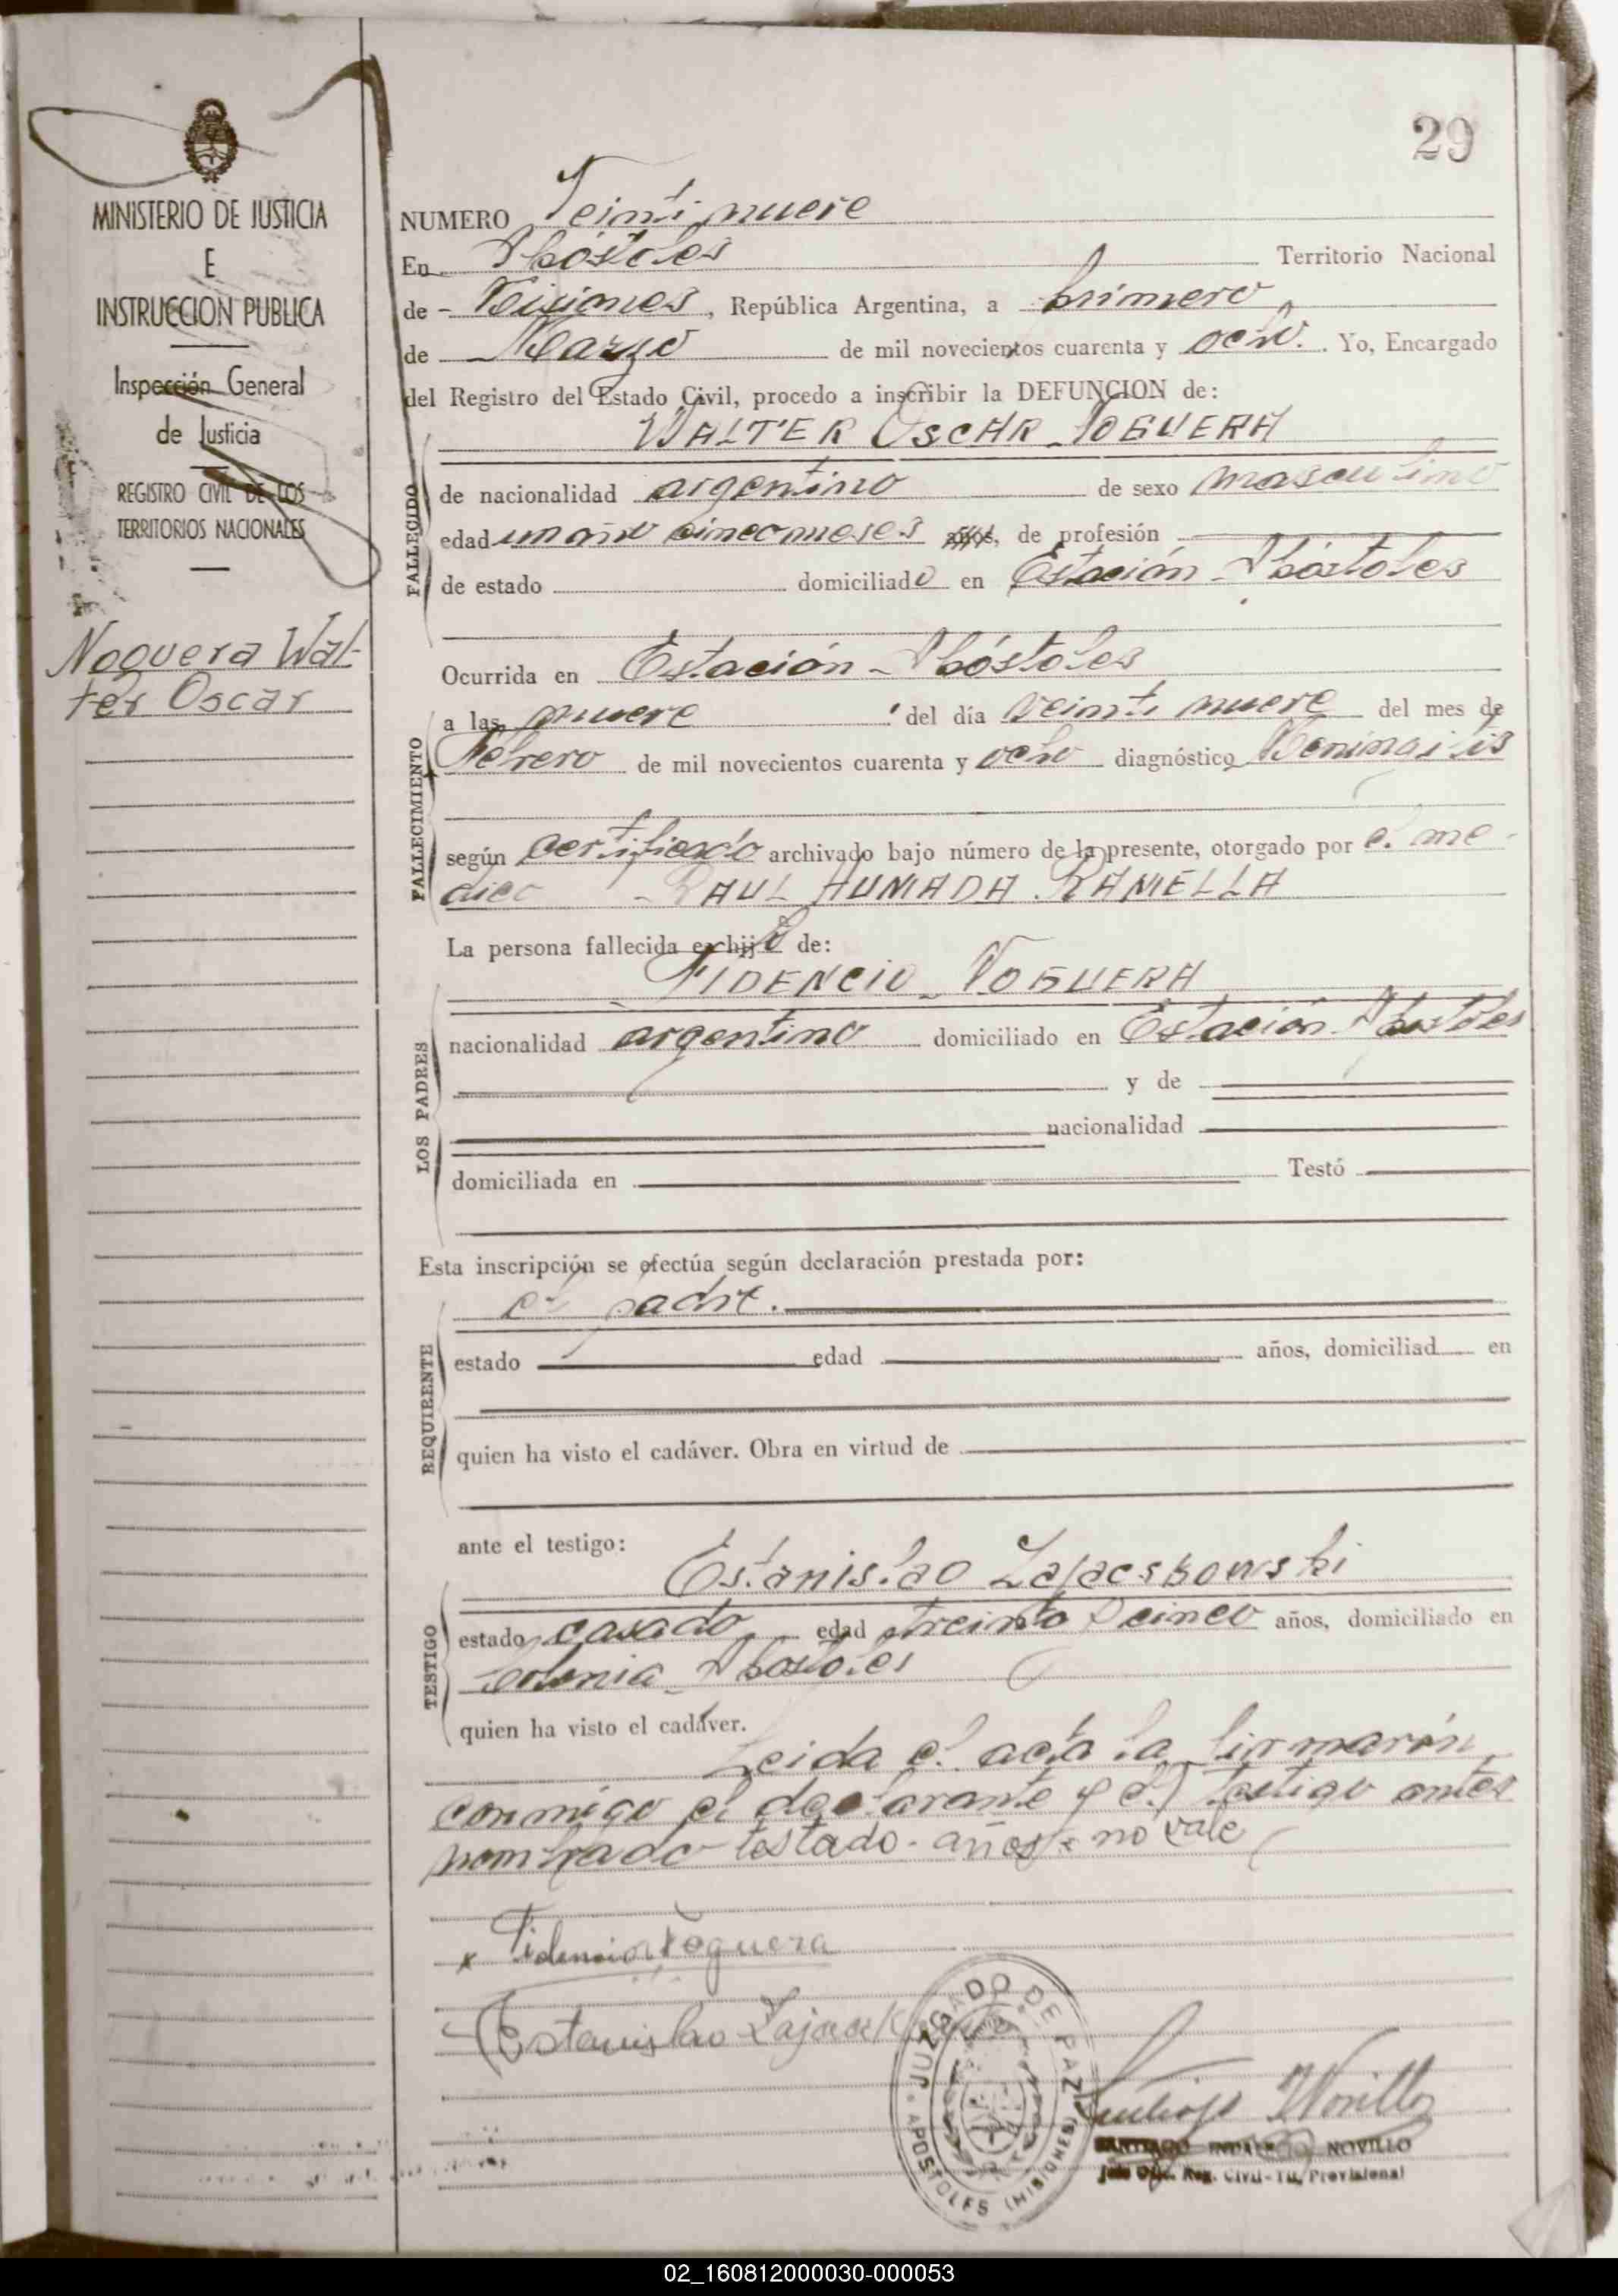 29
MINISTERIO DE JUSTICIA
E
INSTRUCCION PUBLICA
Inspección General
de Justicia
REGISTRO CIVIL DE LOS
TERRITORIOS NACIONALES
Noguera Wal-
ter Oscar
NUMERO Veintinueve
En Apóstoles Territorio Nacional
de - Misiones, República Argentina, a primero
de Marzo de mil novecientos cuarenta y ocho. Yo, Encargado
del Registro del Estado Civil, procedo a inscribir la DEFUNCION de:
WALTER OSCAR NOGUERA
FALLECIDO
de nacionalidad argentino de sexo masculino
edad un año cinco meses años, de profesión
de estado domiciliado en Estación Apóstoles
FALLECIMIENTO
Ocurrida en Estación - Apóstoles
a las nueve del día veinti nueve del mes de
Febrero de mil novecientos cuarenta y ocho diagnóstico Meningitis
según certificado archivado bajo número de la presente, otorgado por el me-
dico - RAUL AUMADA RAMELLA
La persona fallecida es hijo de:
LOS PADRES
FIDENCIO NOGUERA
nacionalidad argentino domiciliado en Estación Apóstoles
y de
nacionalidad
domiciliada en Testó
Esta inscripción se efectúa según declaración prestada por:
REQUIRENTE
el padre.
estado edad años, domiciliad en
quien ha visto el cadáver. Obra en virtud de
ante el testigo:
TESTIGO
Estanislao Zajacskowski
estado casado edad treinta y cinco años, domiciliado en
Colonia Apostoles
quien ha visto el cadáver.
Leida el acta la firmarón
conmigo el declarante y el testigo antes
nombrado - testado - años = no vale
x Fidencio Noguera
Estanislao
JUZGADO DE PAZ
APOSTOLES (MISIONES)
Santiago Novillo
SANTIAGO INDALECIO NOVILLO
Jefe Ofic. Reg. Civil - Tit. Provisional
02_160812000030-000053